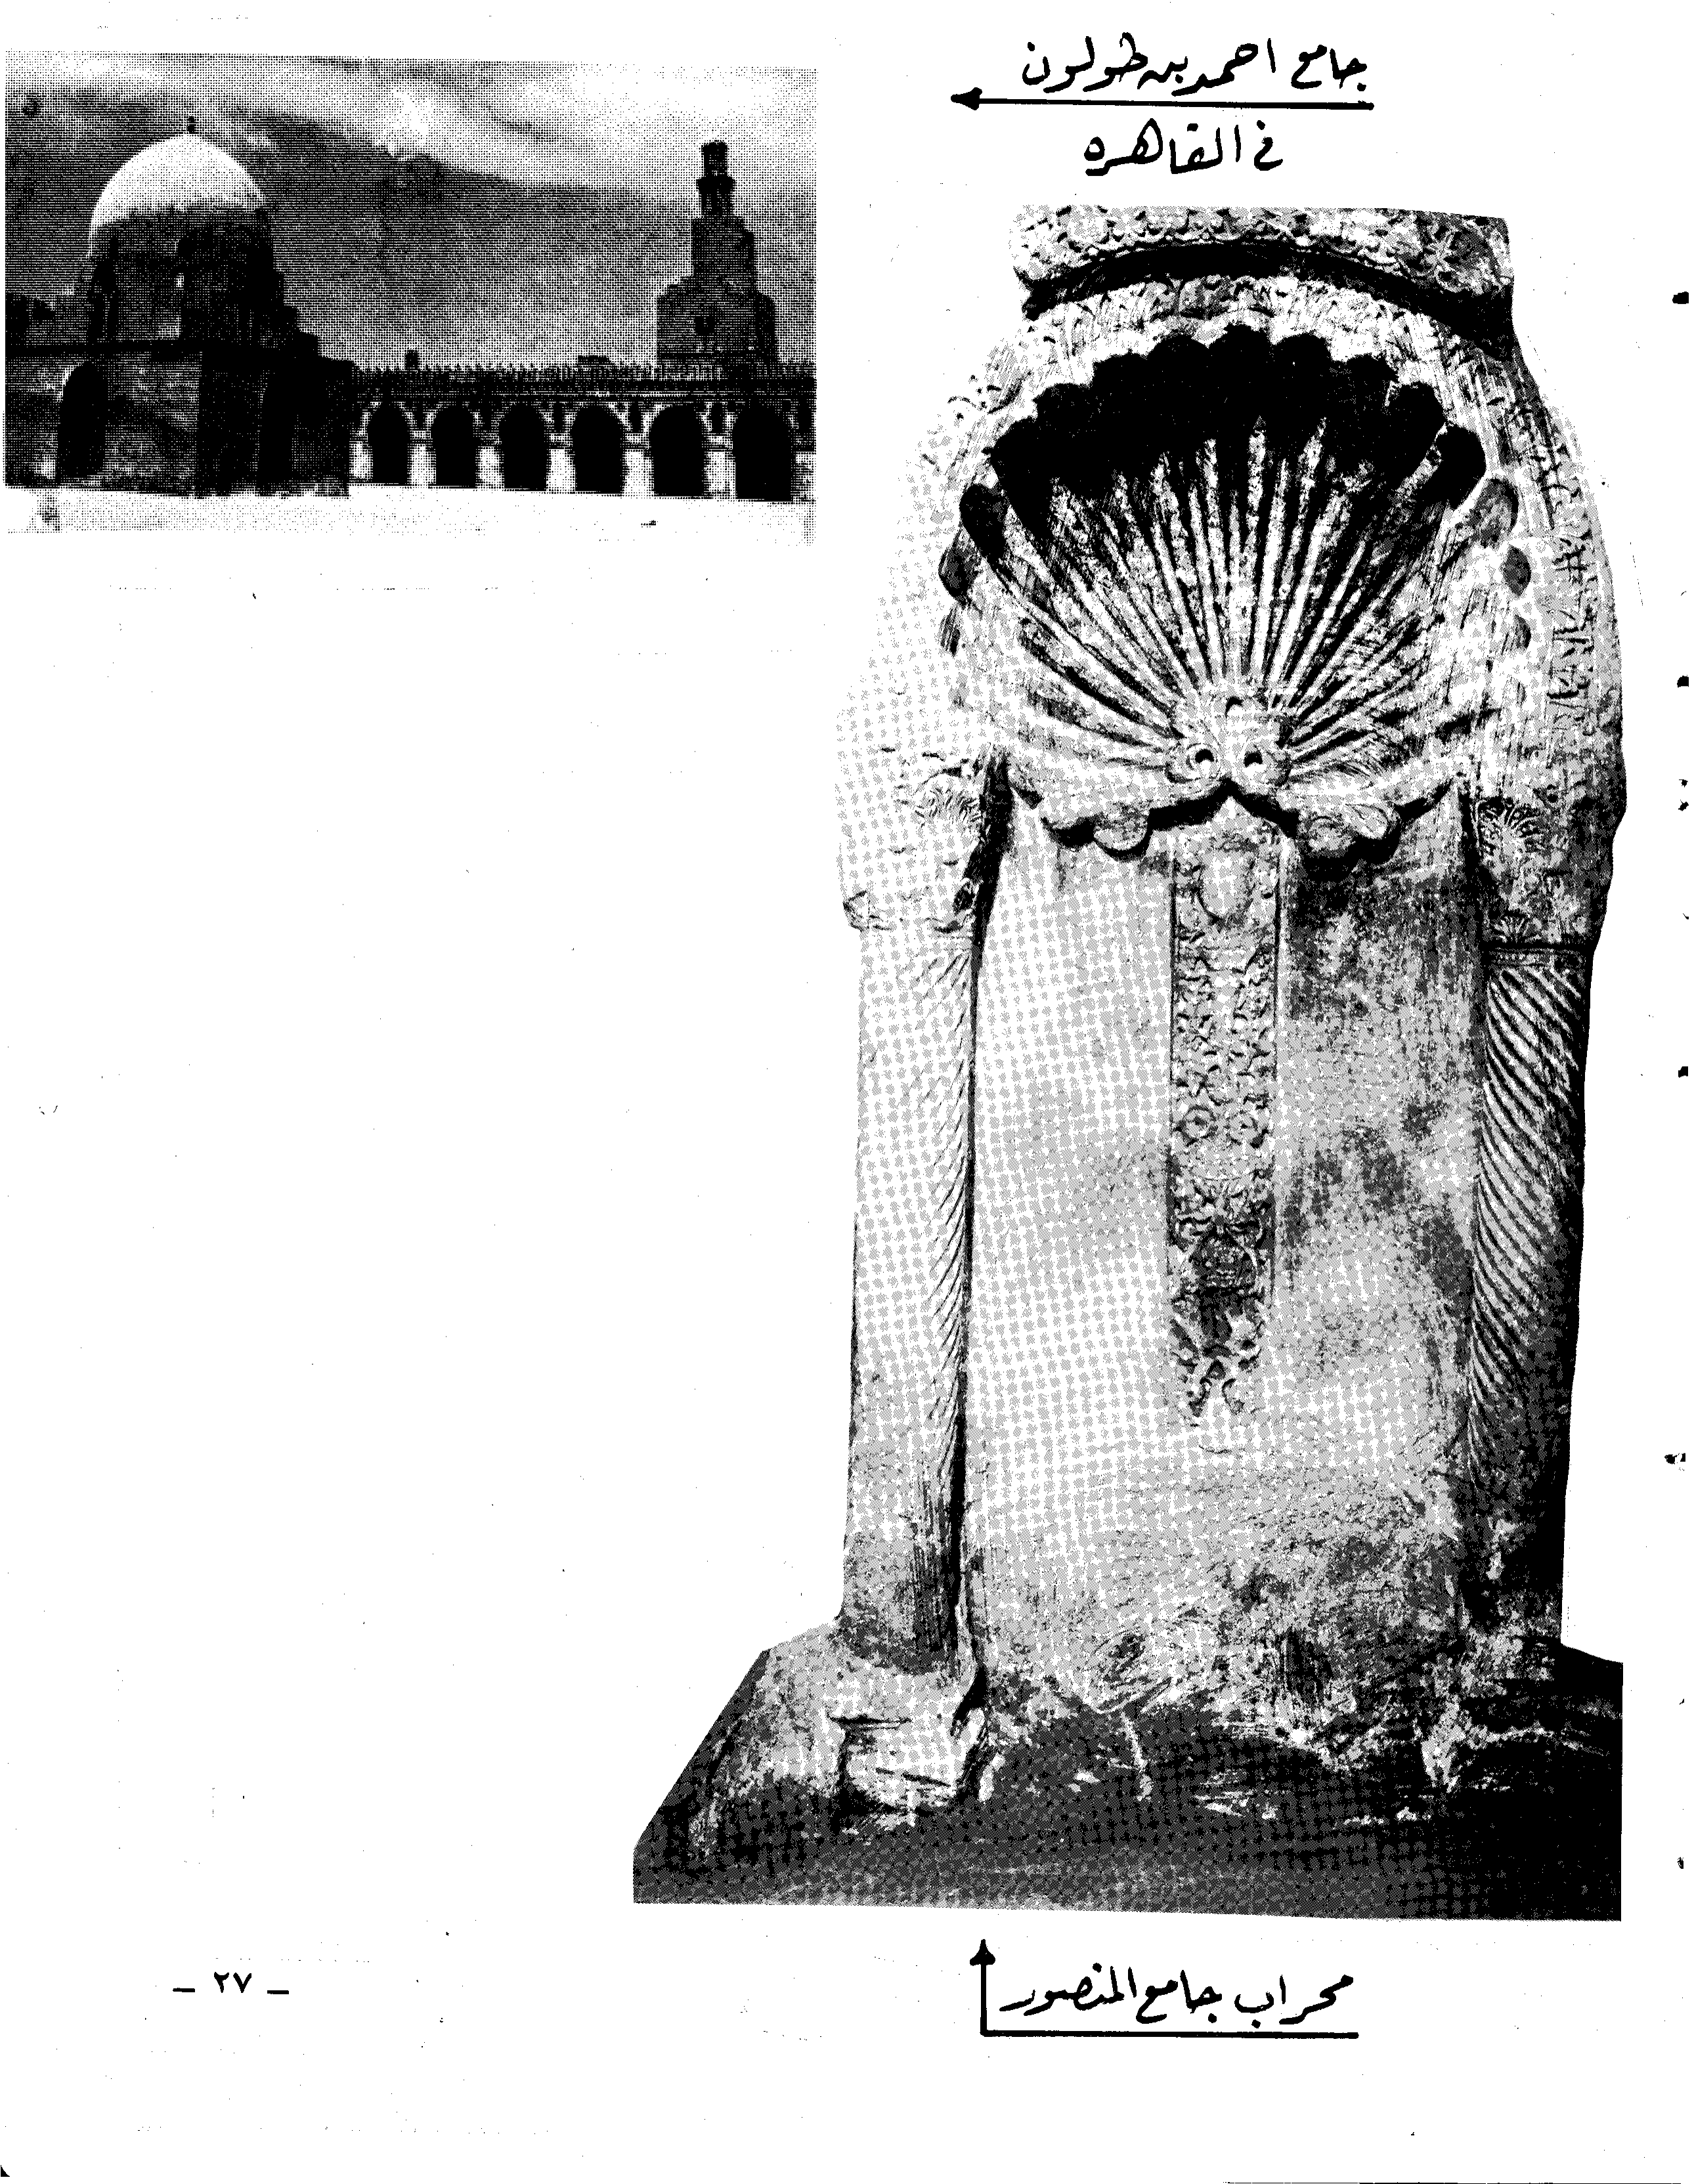 جامع احمد بن طولون
في القاهره
محراب جامع المنصور
– ٢٧ –